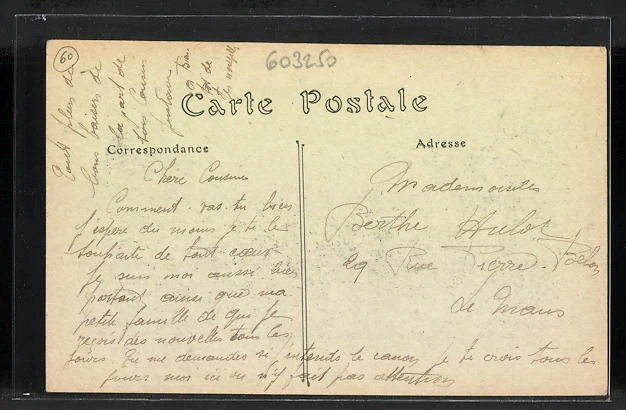 60
603250
Tout plein de
bons baisers de
la part de
ton Cousin
Carte Postale
Correspondance
Adresse
Chère Cousine
Comment vas-tu bien
j'espère du moins je te le
souhaite de tout cœur
je suis moi aussi bien
portant ainsi que ma
petite famille de qui je
reçois des nouvelles tous les
jours. Tu me demandes si j'entends le canon je te crois tous les
jours moi ici on n'y fait pas attention
Mademoiselle
Berthe Hulot
29 Rue Pierre Belon
Le Mans